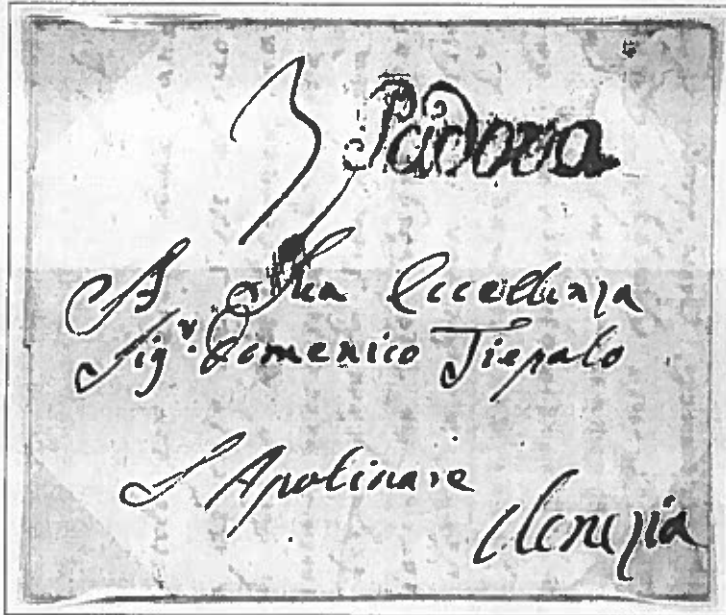 3 Padova
A Sua Eccellenza
Sig.r Domenico Tiepolo
S Apolinare
Venezia